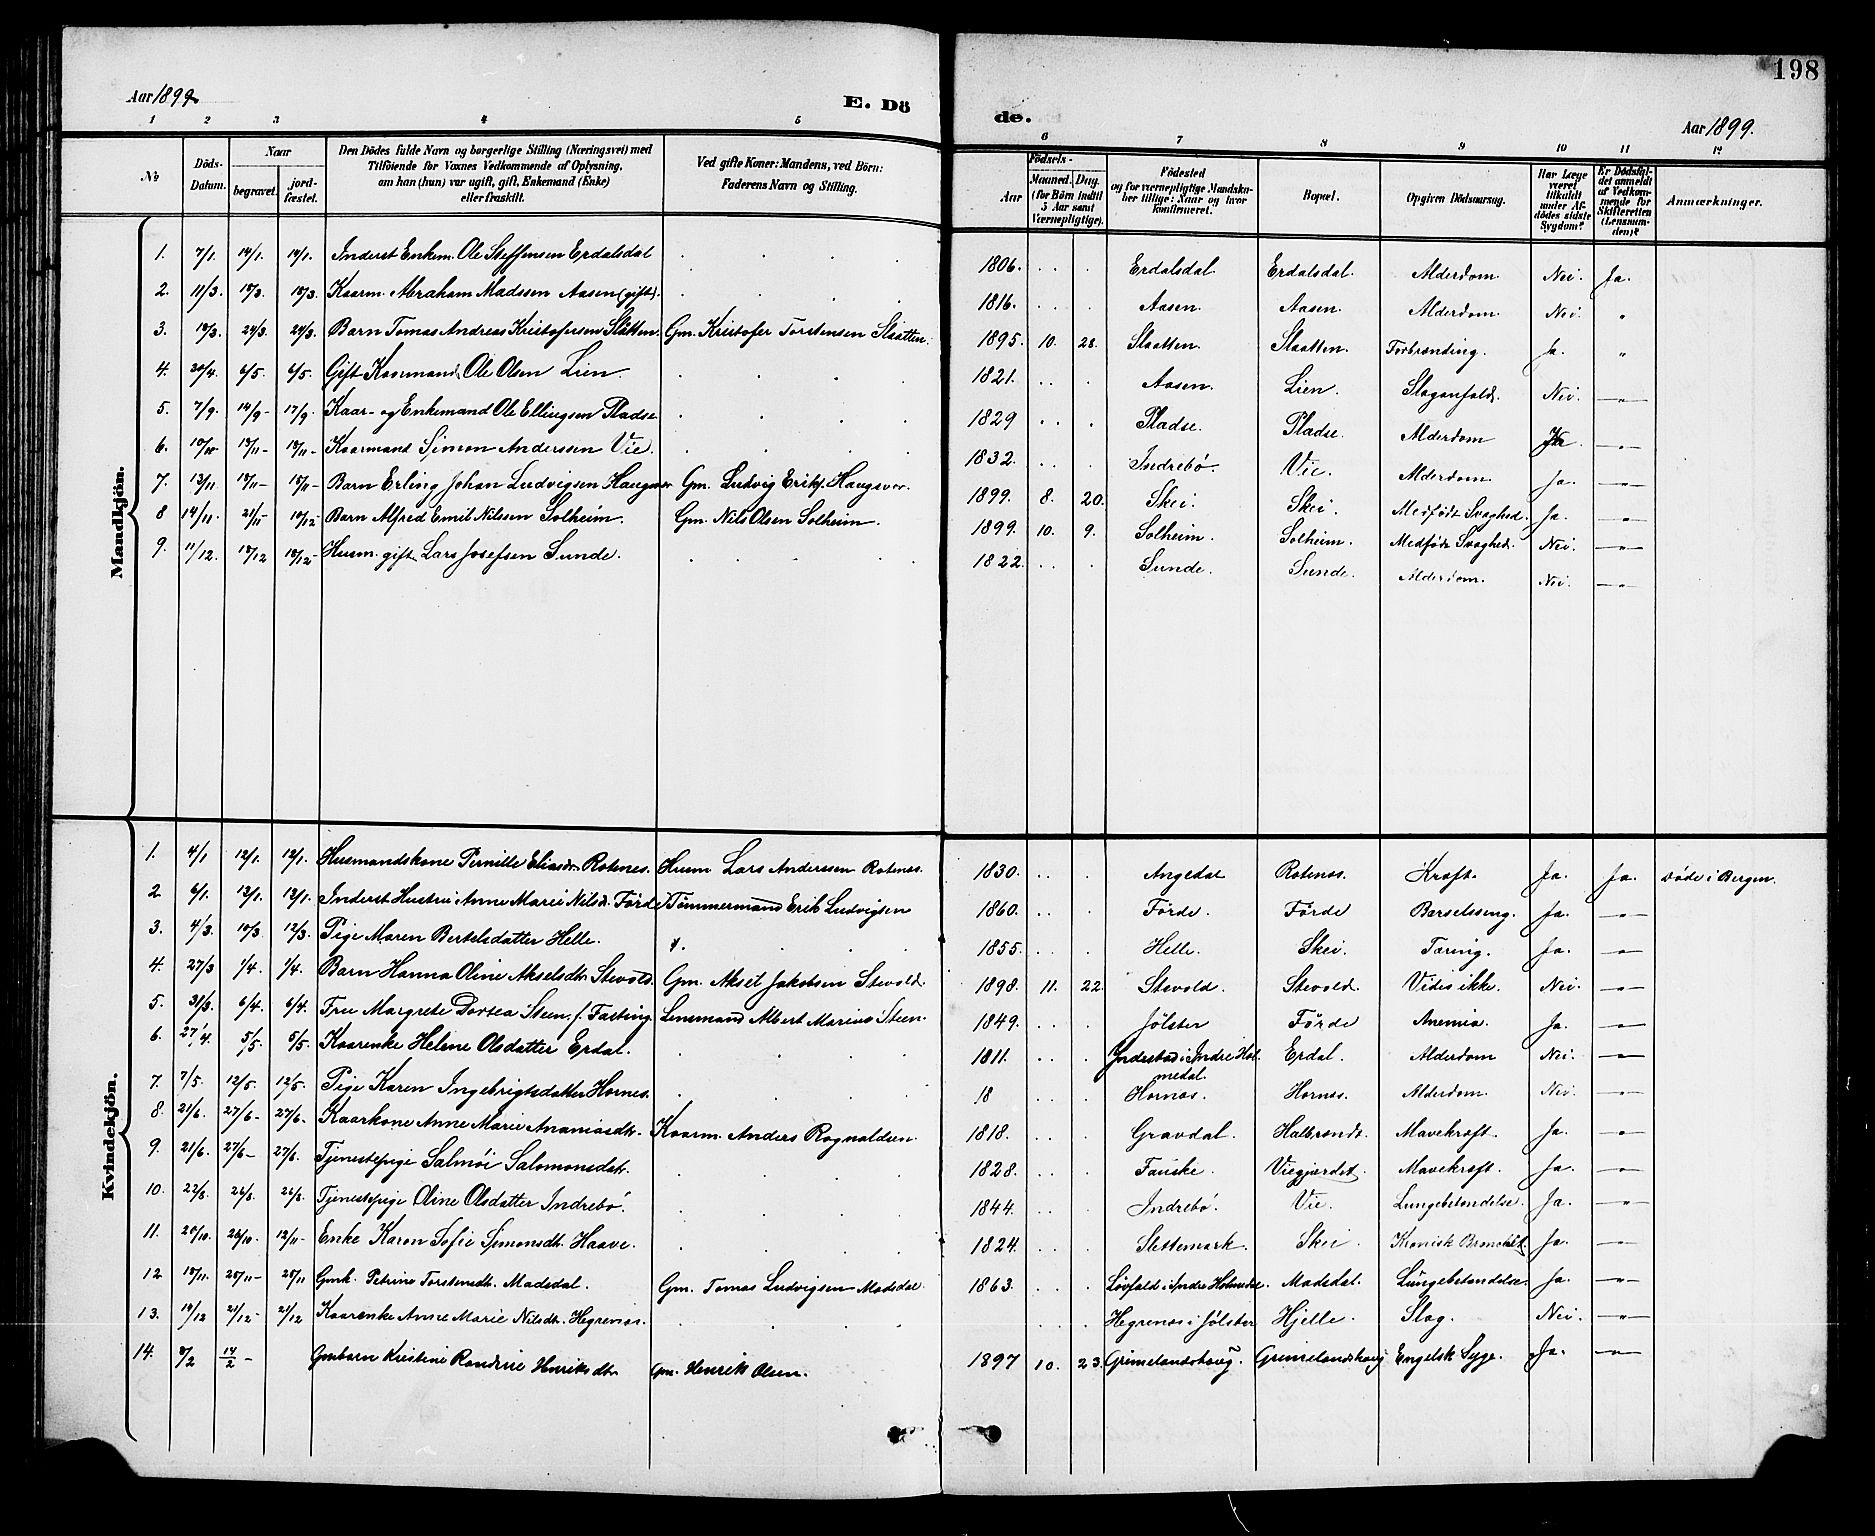 198
Aar 1899 E. Dö de. Aar 1899.
1 2 3 4 5 6 7 8 9 10 11 12
No
Döds-Datum.
Naar
begravet.
jord-fæstet.
Den Dödes fulde Navn og borgerlige Stilling (Næringsvei) med
Tilföiende for Voxnes Vedkommende af Oplysning,
om han (hun) var ugift, gift, Enkemand (Enke)
eller fraskilt.
Ved gifte Koner: Mandens, ved Börn:
Faderens Navn og Stilling.
Födsels-
Aar
Maaned. Dag.
(for Börn indtil
5 Aar samt
Værnepligtige).
Födested
og for værnepligtige Mandska-
ber tillige: Naar og hvor
konfirmeret.
Bopæl.
Opgiven Dödsaarsag.
Har Læge
været
tilkaldt
under Af-
dödes sidste
Sygdom?
Er Dödsfal-
det anmeldt
af Vedkom-
mende for
Skifteretten
(Lensman-
den)?
Anmærkninger.
Mandkjön.
1. 7/1. 14/1. 14/1. Inderst Enkem. Ole Steffensen Erdalsdal 1806. Erdalsdal Erdalsdal. Alderdom Nei. Ja.
2. 11/3. 18/3. 18/3. Kaarm. Abraham Madssen Aasen (gift). 1816. Aasen. Aasen. Alderdom. Nei. "
3. 18/3. 24/3. 24/3. Barn Tomas Andreas Kristofersen Slåtten. Gm. Kristofer Torstensen Slaatten. 1895. 10. 28. Slaatten. Slaatten. Forbrænding. Ja. "
4. 20/4. 6/5. 6/5. Gift Kaarmand Ole Olsen Lien. 1821. Aasen. Lien. Slaganfald. Nei. -"-
5. 7/9. 14/9- 17/9. Kaar- og Enkemand Ole Ellingsen Pladse 1829 Pladse. Pladse. Alderdom -"-
6. 10/10 18/11- 18/11- Kaarmand Simon Anderssen Vie. 1832. Indrebø. Vie. Alderdom. Ja. -"-
7. 13/11 18/11- 18/11- Barn Erling Johan Ludvigsen Haugsvær Gm. Ludvig Eriks. Haugsvær. 1899. 8. 20. Skei. Skei. Medfødt Svaghed. Ja. -"-
8 14/11. 21/11 10/12- Barn Alfred Emil Nilssen Solheim. Gm. Nils Olsen Solheim. 1899. 10. 9. Solheim. Solheim. Medfødt Svaghed. Nei. -"-
9. 11/12. 18/12 18/12- Husm. gift Lars Josefsen Sunde. 1822. Sunde. Sunde. Alderdom. Nei. -"-
Kvindekjön.
1. 4/1 12/1. 12/1. Husmandskone Pernille Eliasdr. Rotenes. Husm Lars Anderssen Rotenes. 1830. Angedal Rotenes. Kræft. Ja. Ja. Døde i Bergen.
2 6/1. 13/1. 13/1. Inderst Hustru Anne Marie Nilsd. Førde Tømmermand Erik Ludvigsen 1860. Førde. Førde Barselsseng. Ja. -"-
3. 4/3. 10/3. 12/3. Pige Maren Bertelsdatter Helle. 1855. Helle. Skei. Tæring. Ja. -"-
4. 27/3 1/4. 1/4. Barn Hanna Oline Akselsdtr. Stevold. Gm. Aksel Jakobsen Stevold. 1898. 11. 22. Stevold. Stevold. Vides ikke. Nei. -"-
5. 31/3. 6/4. 6/4. Fru Margrete Dortea Steen, f. Fasting. Lensmand Albert Marius Steen. 1849. Jølster Førde Anemia. Ja. -"-
6. 27/4. 5/5. 5/5. Kaarenke Helene Olsdatter Erdal. 1811. Yndestad i Indre Hol-medal. Erdal. Alderdom Nei. -"-
7. 7/5. 12/5. 12/5. Pige Karen Ingebrigtsdatter Hornes. 18 Hornes. Hornes. Alderdom. Nei. -"-
8. 21/6. 27/6- 27/6. Kaarkone Anne Marie Ananiasdtr. Kaarm. Anders Rognaldsen. 1818. Gravdal. Halbrendt. Mavekræft. Ja. -"-
9. 21/6. 27/6- 27/6. Tjenestepige Salmøi Salomonsdatr. 1828. Fauske. Viegjerdet. Mavekræft. Ja. -"-
10. 22/8. 26/8. 26/8. Tjenestepige Oline Olsdatter Indrebø. 1844. Indrebø. Vie. Lungebetændelse. Ja. -"-
11. 20/10. 28/10. 12/11- Enke Karen Sofie Simonsdtr. Haave. 1824. Slettemark. Skei. Kronisk Bronchit. Ja. -"-
12 18/11. 25/11- 25/11 Gmk. Petrine Torstensdtr. Madsdal. Gm. Tomas Ludvigsen Madsdal. 1863. Løvfald i Indre Holmedal. Madsdal. Lungebetændelse. Ja. -"-
13. 14/12 21/12- 21/12 Kaarenke Anne Marie Nilsdtr. Hegrenes. Hegrenes i Jølster Hjelle. Slag. Nei. -"-
14. 8/2 14/2- Gmbarn Kristine Randine Henriksdtr Gm. Henrik Olsen. 1897 10. 23. Grimelandshaug. Grimelandshaug Engelsk Syge. Ja. -"-